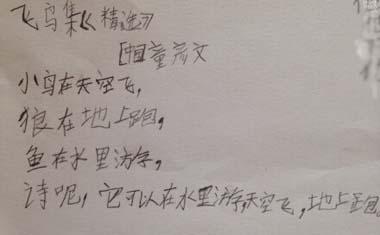 飞鸟集《精选》
小鸟在天空飞，
狼在地上跑，
鱼在水里游，
诗呢，它可以在水里游，天空飞，地上跑